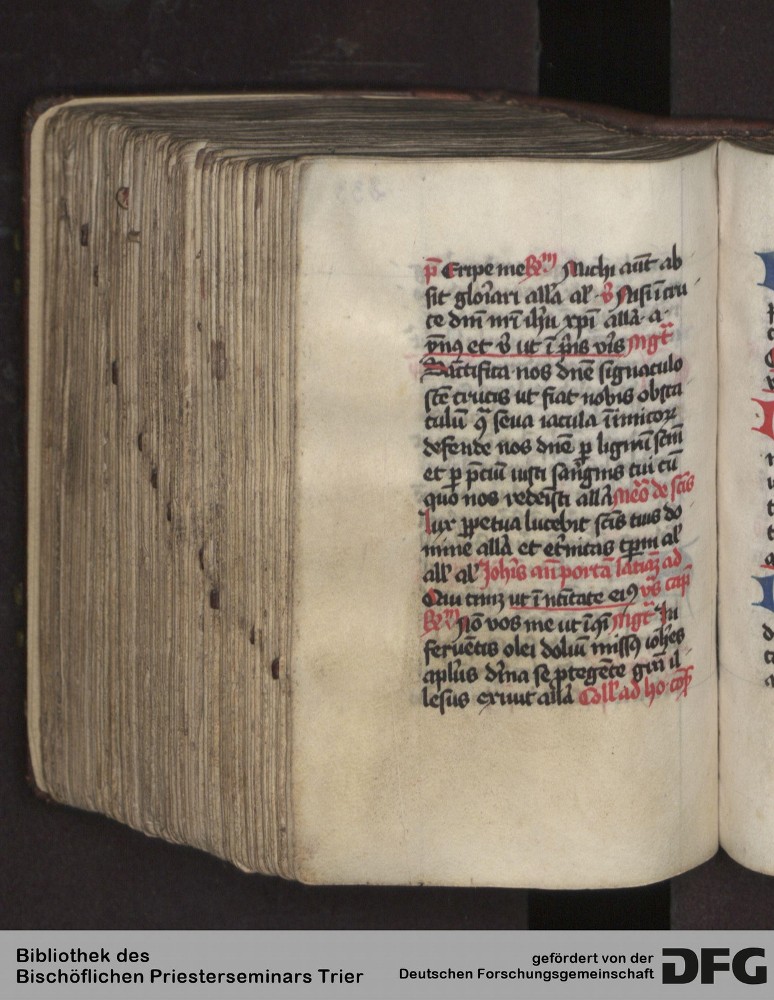 p̄ Eripe me R̄m Michi aūt ab
sit glo᷑iari all᷑a al᷑ v̄ Nisi ī cru
ce dnī nr̄i ih̄u xp̄i all᷑a a
v̄ ut ī p̄mis v̄is mgt᷑
Sāctifica nos dn̄e signaculo
scē crucis ut fiat nobis obsta
culū q᷑ seua iacula īimicoꝝ
defende nos dn̄e ꝑ lignū scm̄
et ꝑ p̄ciū iusti sāgīnis tui cū
quo nos redeīsti all᷑a de scīs
Lux ꝑpetua lucebit scīs tuis do
mine all᷑a et et᷑nitas tp̄m al᷑
all᷑ al᷑ Joh̄is an̄ portā latinā ad
ut ī ntītate eiꝰ v̄s cap᷑
R̄m Nō vos me ut īq̄ mgt᷑ In
feruētis olei doliū missꝰ ioh̄es
apl̄us dīna se ꝓtegēte grā il
lesus exiuit all᷑a Coll᷑ ad ho
Bibliothek des
Bischöflichen Priesterseminars Trier
gefördert von der
Deutschen Forschungsgemeinschaft
DFG